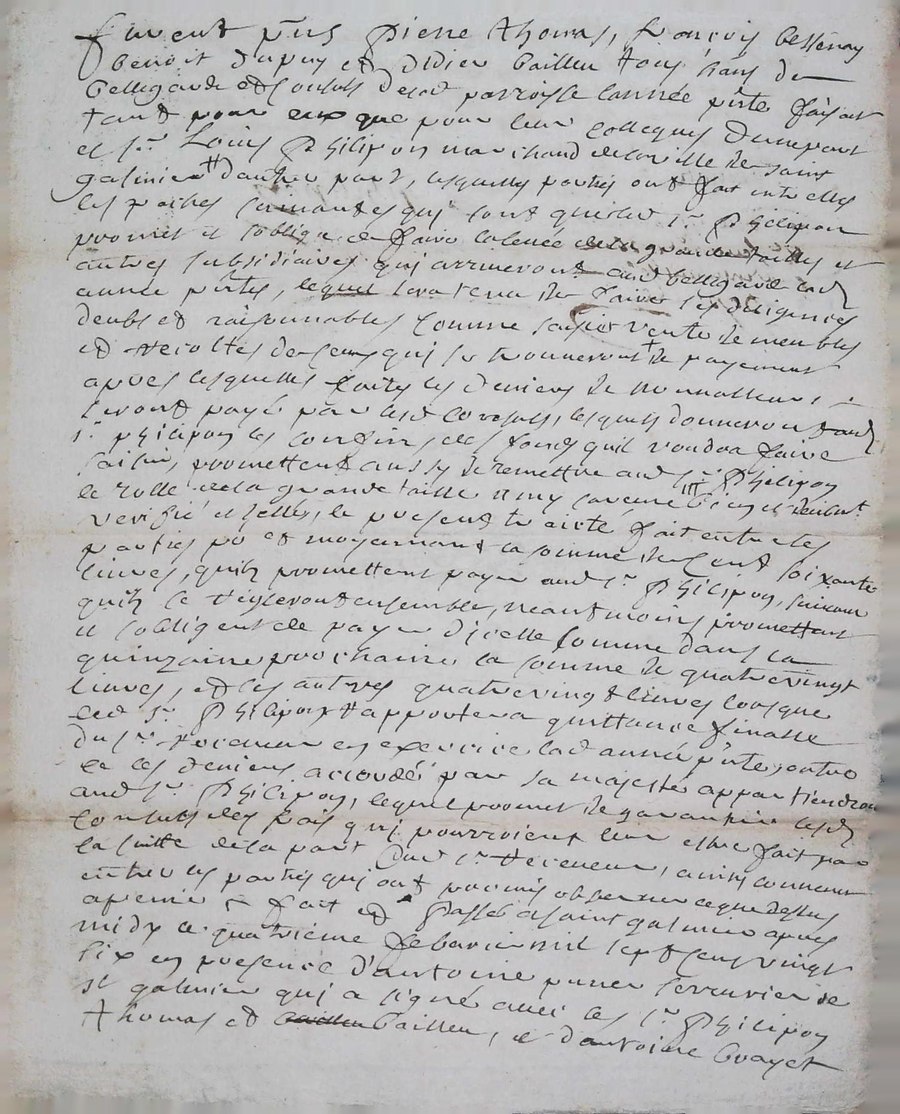 furent pnts pierre thomas, francois bessenay
benoit dupuy et didier bailleu tous hans de
bellegarde et consuls de lad parroisse lannée pnte faisant
tant pour eux que pour leur collegues dune part
et sr Louis philipon marchand de la ville de saint
galmier dautre part, lesquelles parties ont fait entre elles
les pactes suivantes qui sont que led sr philipon
promet et soblige de faire la levée de la grande taille et
autres subsidiaires qui arriveront aud bellegarde lad
année pnte, lequel sera tenu de faire les diligences
deubs et raisonnables comme saisie vente de meubles
et recoltes de ceux qui se trouveront de payement
apres lesquelles faites les deniers de
seront payé par lesd consuls, lesquels donneront aud
sr philipon les confins des fonds quil voudra faire
saisir, promettent aussy de remettre aud sr philipon
le rolle de la grande taille
verifié et selle, le present traicté fait entre les
parties pn et moyennant la somme de cent soixante
livres, quils promettent payer aud sr philipon, suivant
quils se regleront ensemble, neantmoins promettent
et sobligent de payer dicelle somme dans la
quinzaine prochaine la somme de quatrevingt
livres, et les autres quatrevingt livres lorsque
led sr philipon rapportera quittance finalle
du sr receveur en exercice lad année pnte, outre
ce les deniers accordé par sa majesté appartiendront
aud sr philipon, lequel promet de garantir lesd
consuls des frais qui pourroient leur estre fait par
la suitte de la part dud sr receveur, ainsi convenu
entre les parties qui ont promis observer ce que dessus
a peine & fait et passé a saint galmier apres
midy le quatrieme febvrier mil sept cens vingt
six en presence dantoine serrurier de
st galmier qui a signé avec les sr philipon
thomas et bailleu, et dantoine